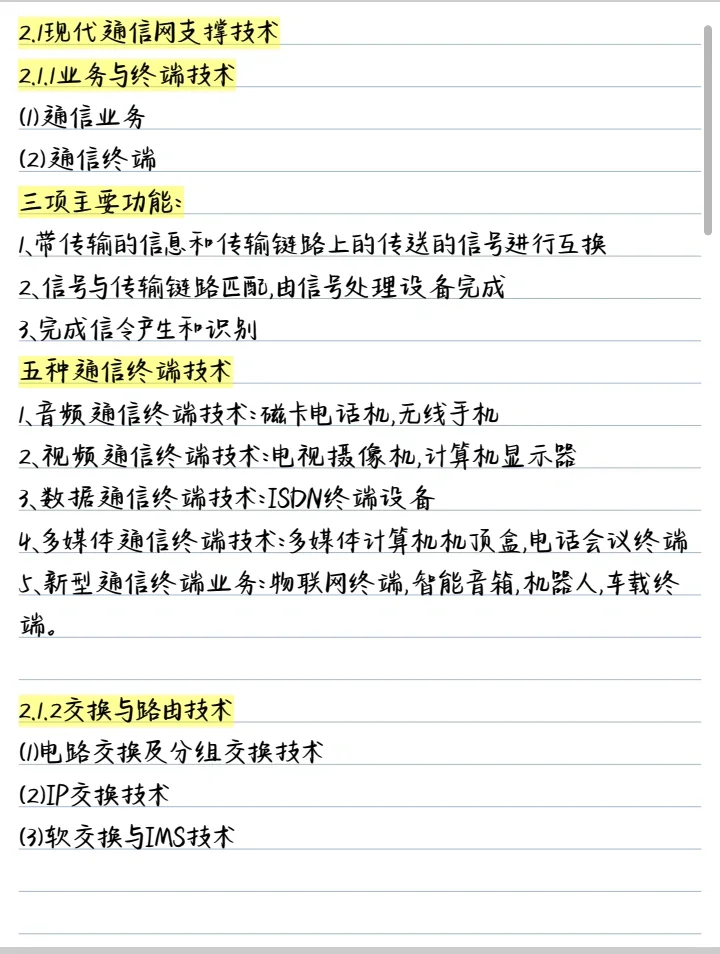 2.1现代通信网支撑技术
2.1.1业务与终端技术
(1)通信业务
(2)通信终端
三项主要功能:
1、带传输的信息和传输链路上的传送的信号进行互换
2、信号与传输链路匹配,由信号处理设备完成
3、完成信令产生和识别
五种通信终端技术
1、音频通信终端技术:磁卡电话机,无线手机
2、视频通信终端技术:电视摄像机,计算机显示器
3、数据通信终端技术:ISDN终端设备
4、多媒体通信终端技术:多媒体计算机机顶盒,电话会议终端
5、新型通信终端业务:物联网终端,智能音箱,机器人,车载终
端。
2.1.2交换与路由技术
(1)电路交换及分组交换技术
(2)IP交换技术
(3)软交换与IMS技术